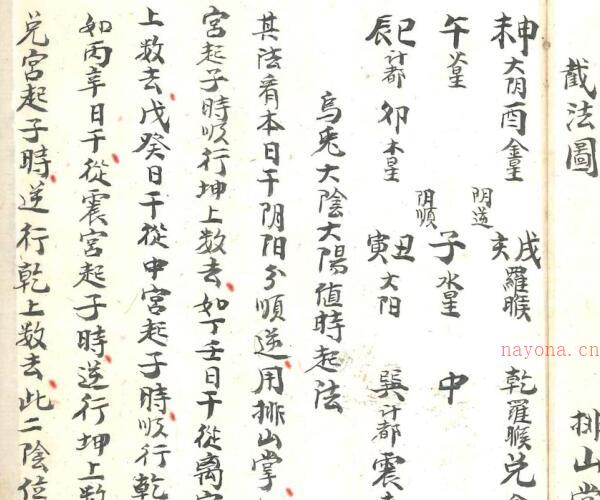 戱法圖
排山掌
未申大阴酉金星 戌亥羅睺 乾羅睺兑
阴逆
午火星 子水星 中
阴順
辰巳计都卯木星 丑寅大阳 巽计都震
烏兎大陰大陽值時起法
其法看本日干阴阳分順逆用排山掌
宮起子時順行坤上数去如丁壬日干從离宮
上数去戊癸日干從中宮起子時順行乾
如丙辛日干從震宮起子時逆行坤上数
兑宮起子時逆行乾上数去此二陰位
nayona.cn